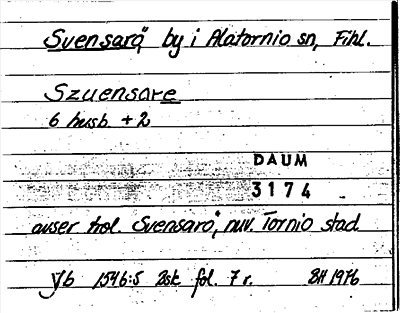 Svensarö, by i Alatornio sn, Finl.
Szuensare
6 husb. + 2
DAUM
3174
avser hol. Svensarö, nuv. Tornio stad
yb 1546:5 2sk fol. 7 r. BH 1976